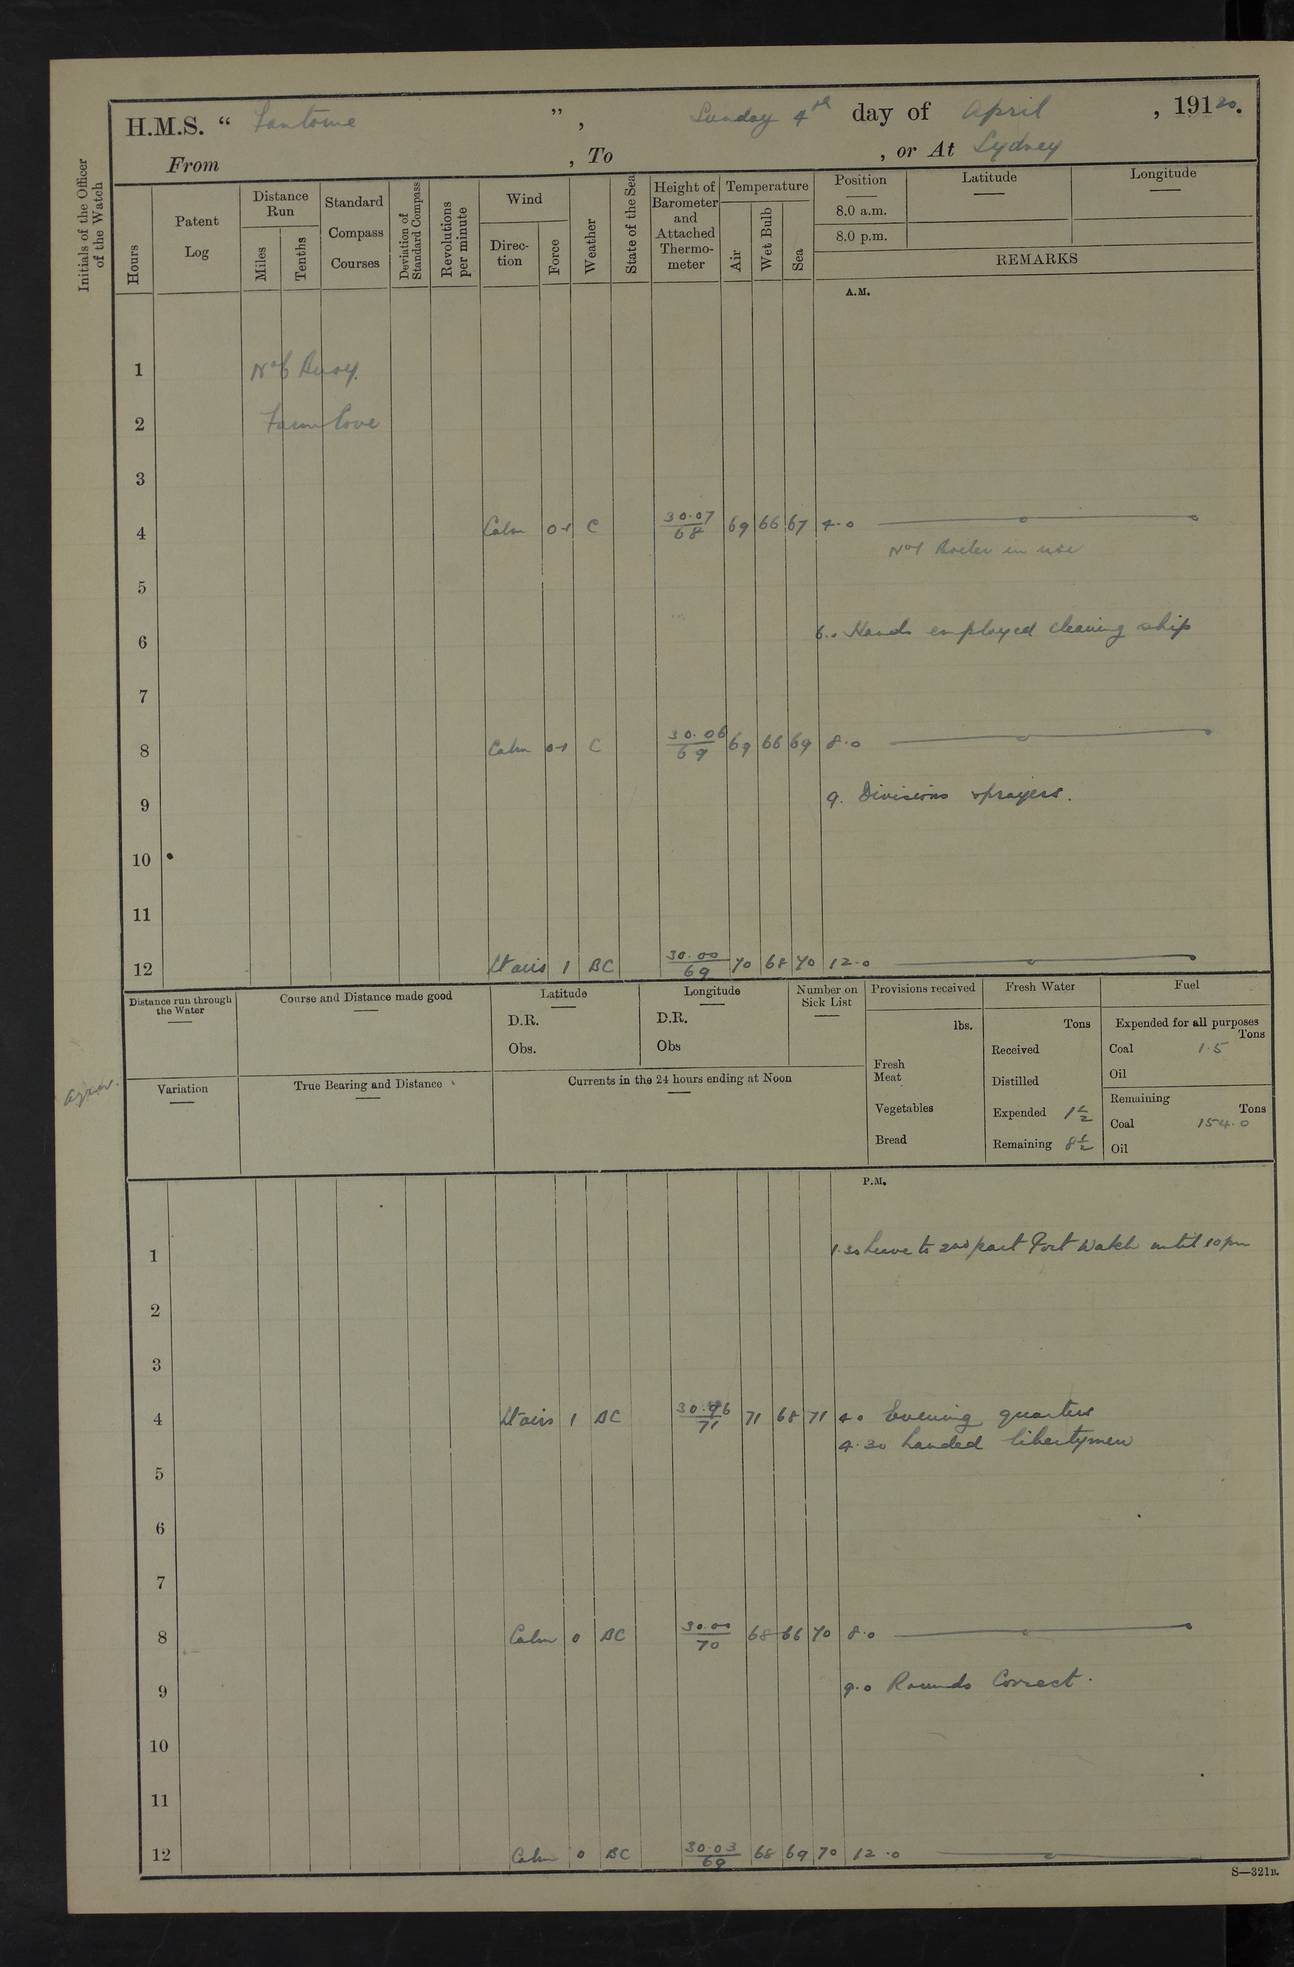 H.M.S. “ Fantome ”, Sunday 4th day of April, 19120.
From , To , or At Sydney
Initials of the Officer of the Watch
Hours
Patent Log
Distance Run
Miles
Tenths
Standard Compass Courses
Deviation of Standard Compass
Revolutions per minute
Wind
Direction
Force
Weather
State of the Sea
Height of Barometer and Attached Thermometer
Temperature
Air
Wet Bulb
Sea
Position
8.0 a.m.
8.0 p.m.
Latitude
Longitude
REMARKS
A.M.
1 No 6 Buoy.
2 Farm Cove
3
4 Calm 0-1 C 30.07/68 69 66 67 4.0
No 1 Boiler in use
5
6 6.0 Hands employed cleaning ship
7
8 Calm 0-1 C 30.06/69 69 66 69 8.0
9 9. Divisions & prayers.
10
11
12 Lt airs 1 BC 30.00/69 70 68 70 12.0
Distance run through the Water
Course and Distance made good
Latitude
D.R.
Obs.
Longitude
D.R.
Obs
Number on Sick List
Provisions received
lbs.
Fresh Meat
Vegetables
Bread
Fresh Water
Tons
Received
Distilled
Expended 1½
Remaining 8½
Fuel
Expended for all purposes
Tons
Coal 1.5
Oil
Remaining
Tons
Coal 154.0
Oil
Variation
True Bearing and Distance
Currents in the 24 hours ending at Noon
P.M.
1 1.30 Leave to 2nd part Port Watch until 10 pm
2
3
4 Lt airs 1 BC 71 71 68 71 4.0 Evening quarters
4.30 Landed libertymen
5
6
7
8 Calm 0 BC 30.00/70 68 66 70 8.0
9 9.0 Rounds Correct.
10
11
12 Calm 0 BC 30.03/69 68 69 70 12.0
S—321B.